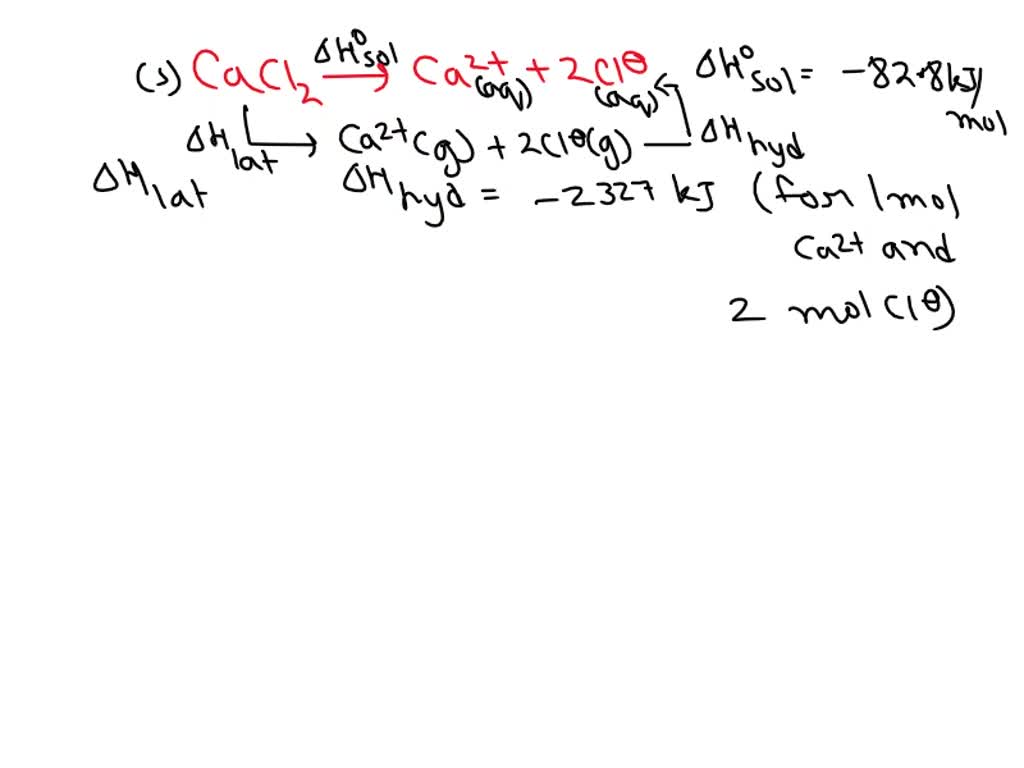 (s) CaCl₂ ΔH⁰sol → Ca²⁺(aq) + 2Cl⊖(aq) ΔH⁰sol = -82.8kJ/mol
ΔHlat → Ca²⁺(g) + 2Cl⊖(g) — ΔHhyd
ΔHlat ΔHhyd = -2327 kJ (for 1mol
Ca²⁺ and
2 mol Cl⊖)